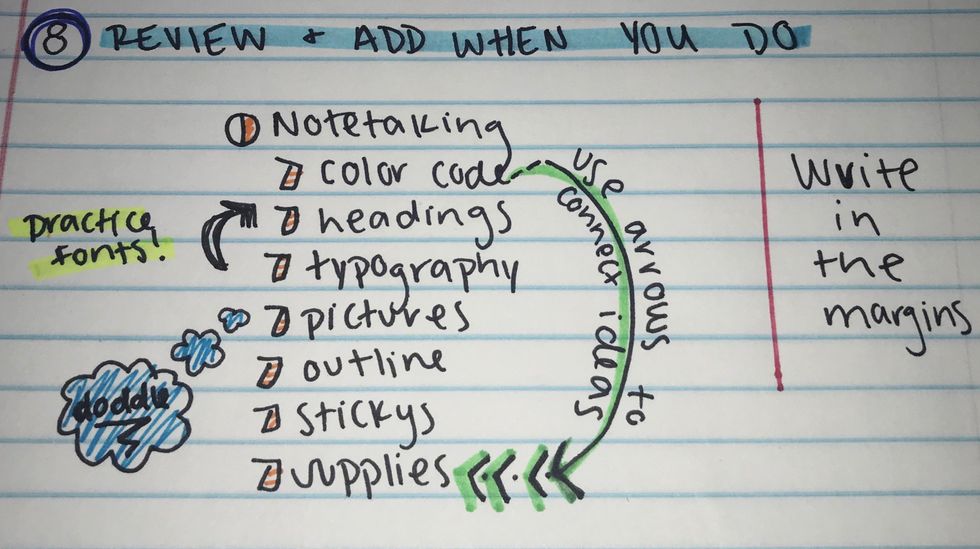 8 REVIEW + ADD WHEN YOU DO
Notetaking
color code
headings
typography
pictures
outline
stickys
supplies
practice
fonts!
doddle
use arrows to
connect ideas
Write
in
the
margins